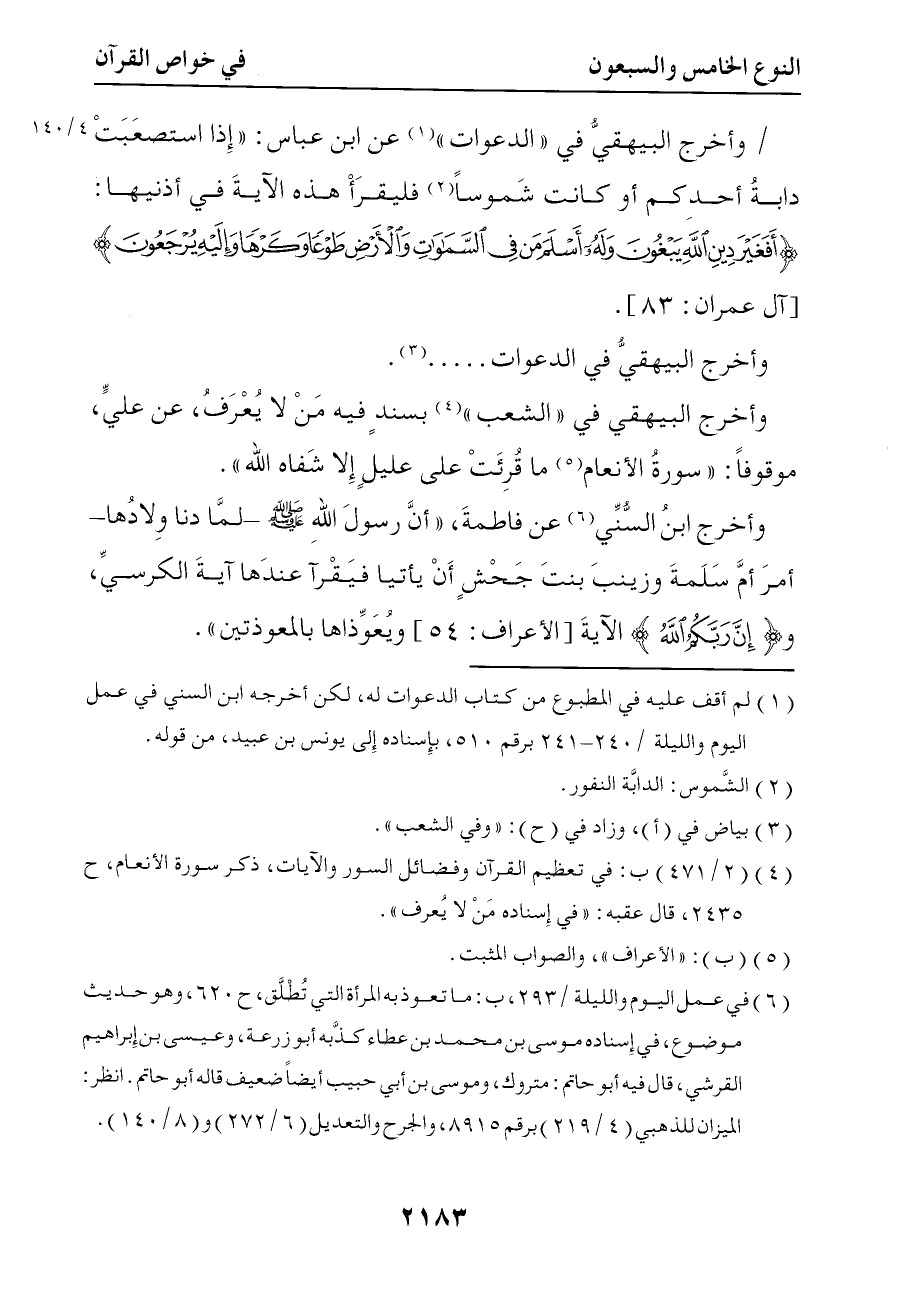 النوع الخامس والسبعون في خواص القرآن
/ وأخرج البيهقيُّ في «الدعوات»(١) عن ابن عباس: «إذا استصعَبَتْ ١٤٠/٤
دابةُ أحدكم أو كانت شَموساً(٢) فليقرَأْ هذه الآيةَ في أذنيها:
﴿أَفَغَيْرَ دِينِ ٱللَّهِ يَبْغُونَ وَلَهُۥٓ أَسْلَمَ مَن فِى ٱلسَّمَٰوَٰتِ وَٱلْأَرْضِ طَوْعًا وَكَرْهًا وَإِلَيْهِ يُرْجَعُونَ﴾
[آل عمران: ٨٣].
وأخرج البيهقيُّ في الدعوات.....(٣).
وأخرج البيهقي في «الشعب»(٤) بسندٍ فيه مَنْ لا يُعْرَفُ، عن عليٍّ،
موقوفاً: «سورةُ الأنعام(٥) ما قُرِئَتْ على عليلٍ إلا شَفاه الله».
وأخرج ابنُ السُّنِّي(٦) عن فاطمةَ، «أنَّ رسولَ اللهِ ﷺ –لـمَّا دنا وِلادُها–
أمرَ أمَّ سَلَمةَ وزينبَ بنتَ جَحْشٍ أنْ يأتيا فيَقْرآ عندَها آيةَ الكرسيِّ،
و﴿إِنَّ رَبَّكُمُ ٱللَّهُ﴾ الآيةَ [الأعراف: ٥٤] ويُعَوِّذاها بالمعوذتين».
(١) لم أقف عليه في المطبوع من كتاب الدعوات له، لكن أخرجه ابن السني في عمل
اليوم والليلة / ٢٤٠–٢٤١ برقم ٥١٠، بإسناده إلى يونس بن عبيد، من قوله.
(٢) الشَّموس: الدابَّة النفور.
(٣) بياض في (أ)، وزاد في (ح): «وفي الشعب».
(٤) (٤٧١/٢) ب: في تعظيم القرآن وفضائل السور والآيات، ذكر سورة الأنعام، ح
٢٤٣٥، قال عقبه: «في إسناده مَنْ لا يُعرف».
(٥) (ب): «الأعراف»، والصواب المثبت.
(٦) في عمل اليوم والليلة / ٢٩٣، ب: ما تعوذ به المرأة التي تُطْلَّق، ح ٦٢٠، وهو حديث
موضوع، في إسناده موسى بن محمد بن عطاء كذَّبه أبو زرعة، وعيسى بن إبراهيم
القرشي، قال فيه أبو حاتم: متروك، وموسى بن أبي حبيب أيضاً ضعيف قاله أبو حاتم. انظر:
الميزان للذهبي (٢١٩/٤) برقم ٨٩١٥، والجرح والتعديل (٢٧٢/٦) و(١٤٠/٨).
٢١٨٣